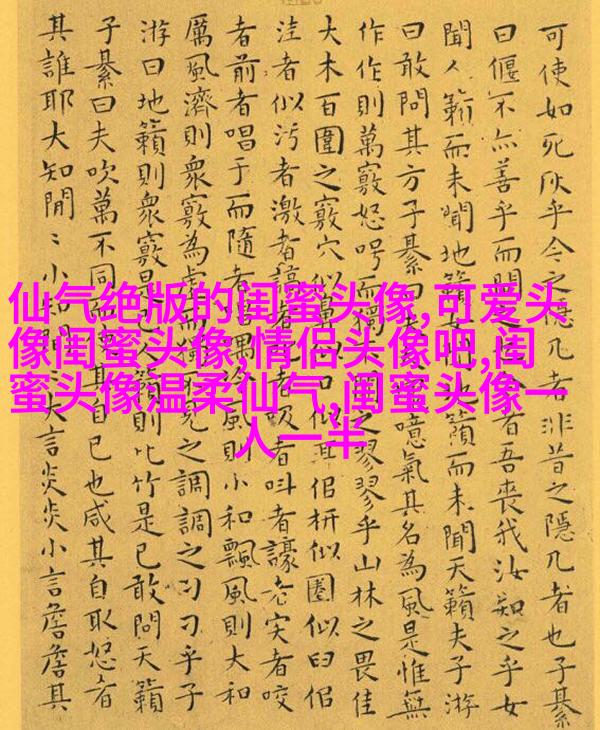 可使如死灰乎今之隱几者非昔之隱几者也子綦
曰偃不亦善乎而問之者吾喪我汝知之乎女
聞人籟而未聞地籟女籟而未聞天籟夫子游
曰敢問其方子綦曰夫噫氣其名為風是惟無
作作則萬竅怒呺而獨之翏翏乎山林之畏佳
大木百圍之竅穴佀鼻口佀耳佀枅似圈似臼佀
洼者似污者激者謞者者吸者叫者譹者宎者咬
者前者唱于而隨者唱喁泠風則小和飄風則大和
厲風濟則衆竅為虛而獨不見之調調之刁刁乎子
游曰地籟則衆竅是已人籟則比竹是已敢問天籟
子綦曰夫吹萬不同而使其自己也咸其自取怒者
其誰耶大知閒〻小知閒〻大言炎炎小言詹詹其
仙气绝版的闺蜜头像,可爱头
像闺蜜头像,情侣头像吧,闺
蜜头像温柔仙气,闺蜜头像一
人一半